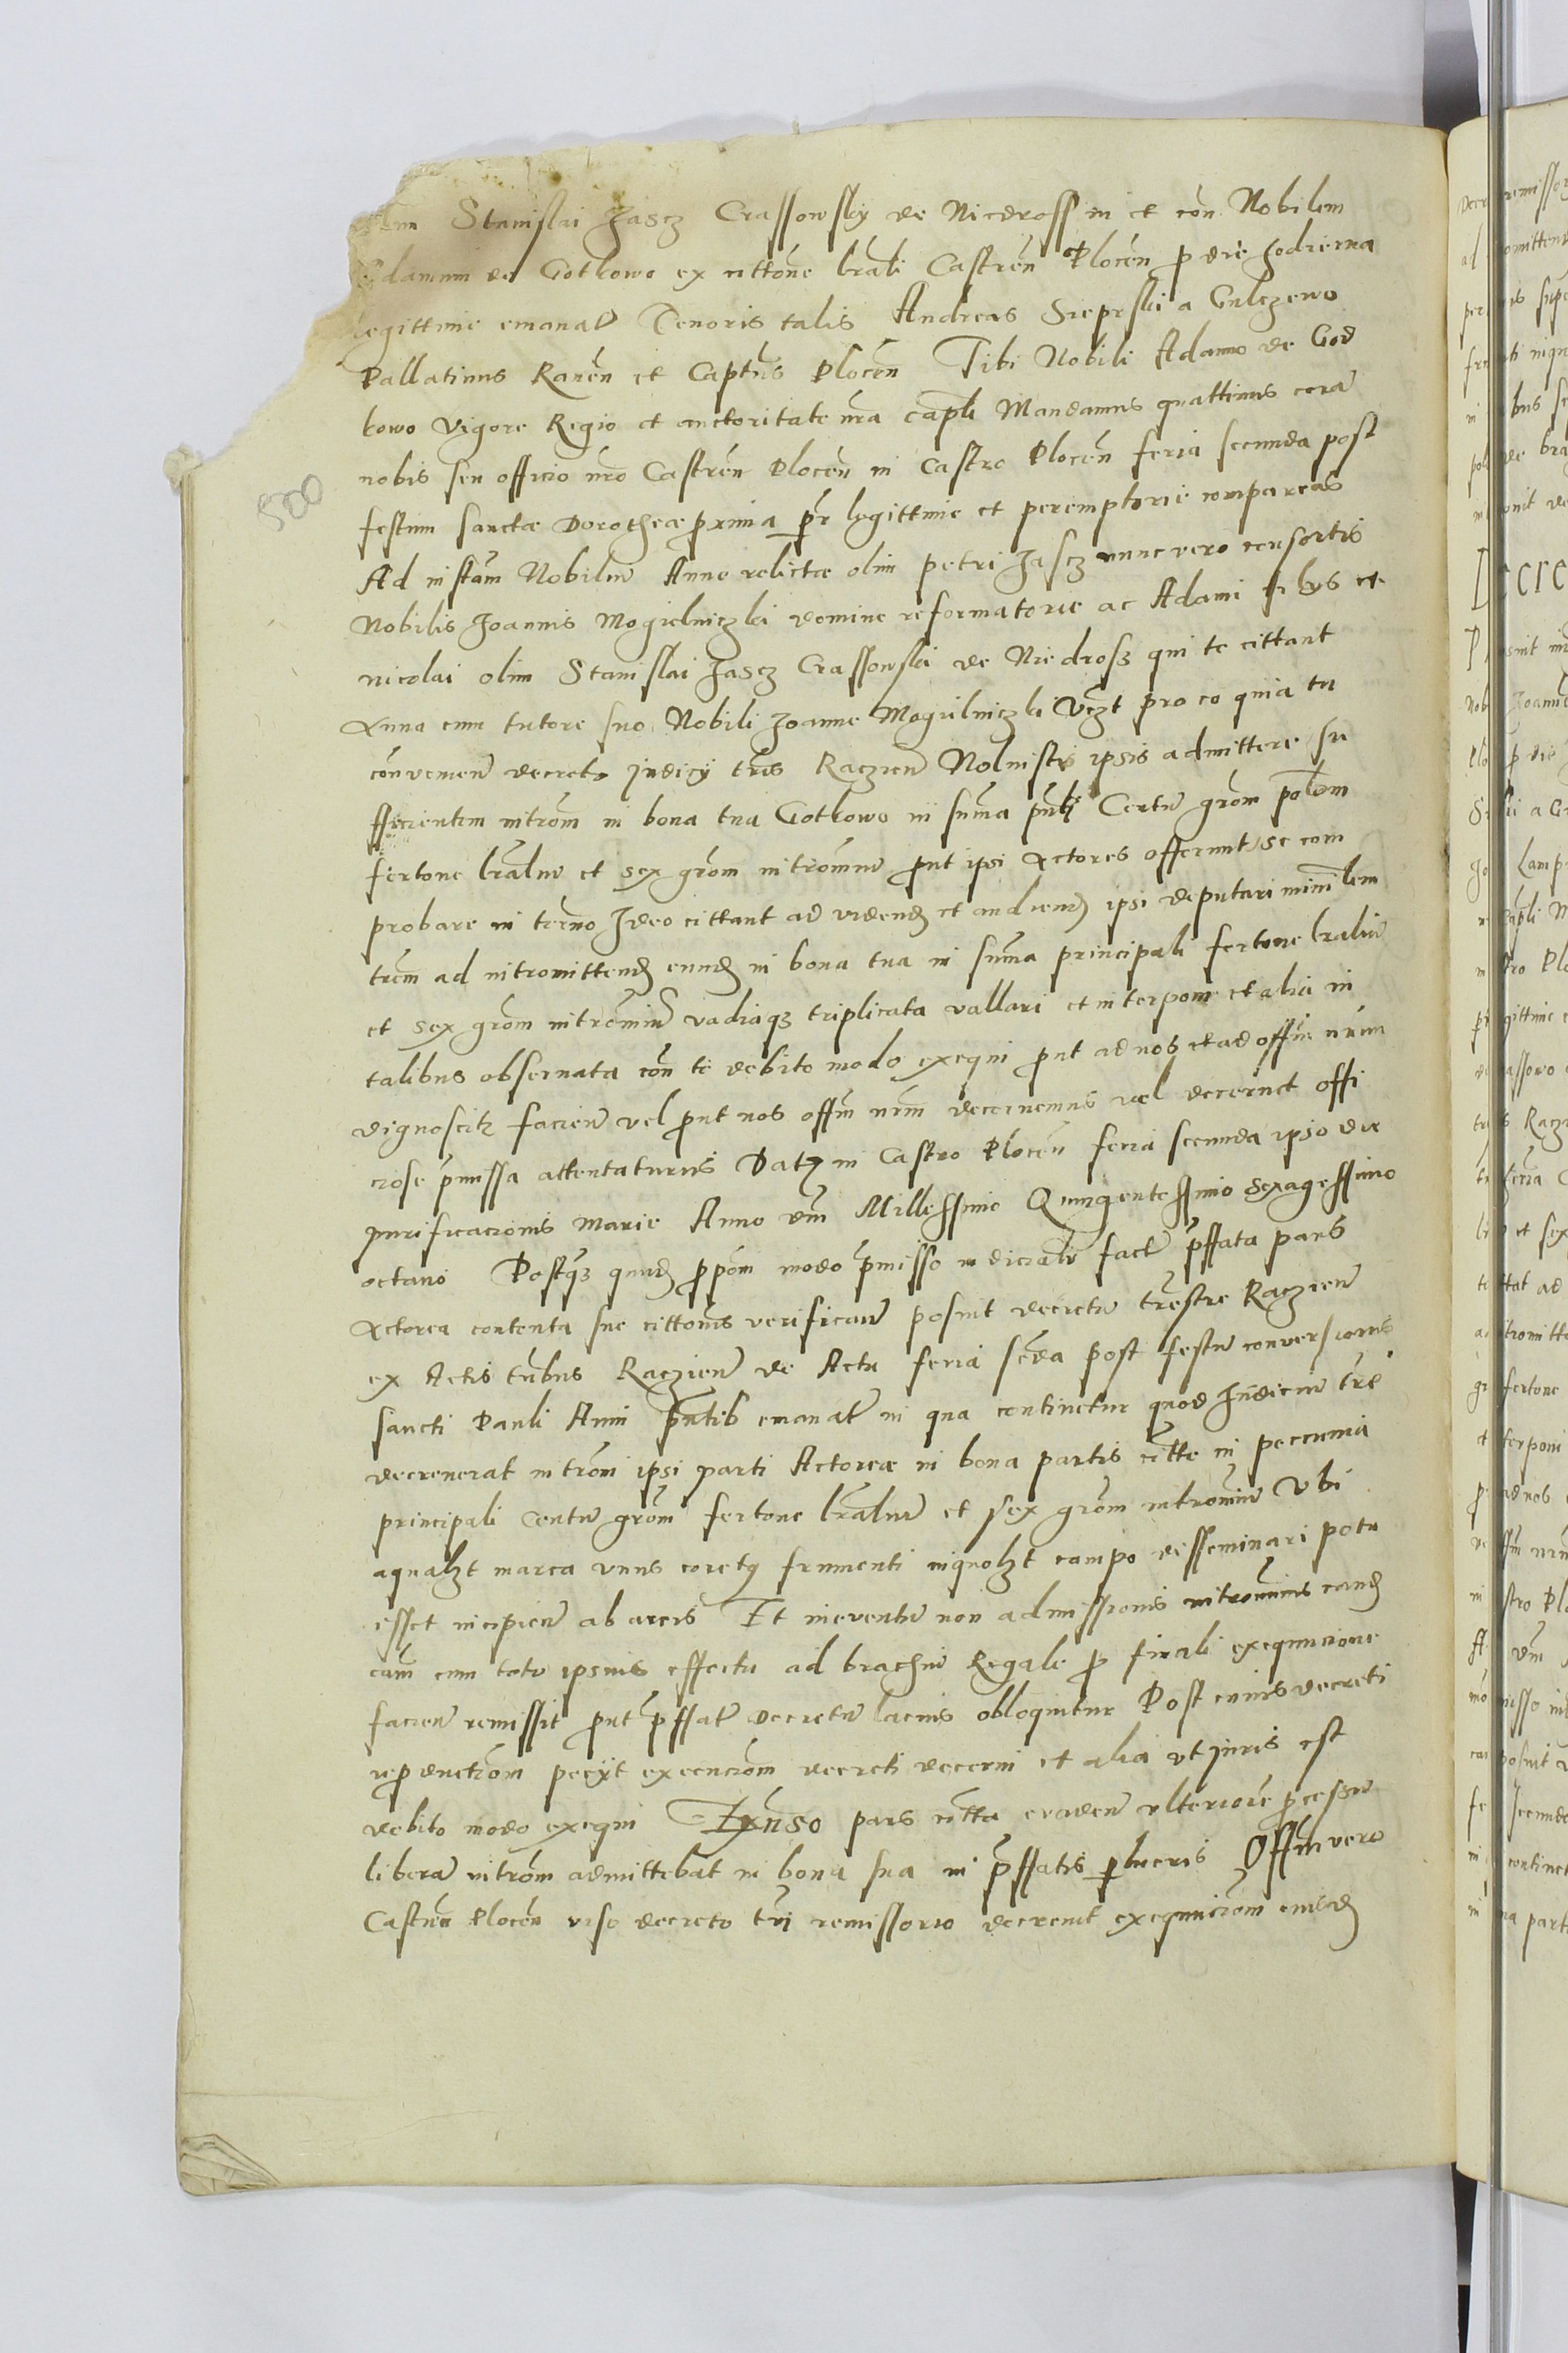 Stanislai Jascz Crassowsky de Niedross in et con Nobilem
Adamum de Gotkowo ex cittone lrali Castren Plocen p die hodierna
legittime emanat Tenoris talis Andreas Sieprski a Gulczewo
Pallatinus Raven et Captus Plocen Tibi Nobili Adamo de God
kowo Vigore Regio et auctoritate nra capli Mandamus quattinus cora
nobis seu officio nro Castren Plocen in Castro Plocen feria secunda post
festum sanctae Dorotheae proxima legittime et peremptorie compareas
Ad instam Nobiliu Anne relictae olim petri Jascz nunc vero consortis
Nobilis Joannis Mogielniczki domine reformatorie ac Adami et
nicolai olim Stanislai Jascz Crassowski de Niedrosz qui te cittant
Anna cum tutore suo Nobili Joanne Mogielniczki Vczt pro eo quia tu
convenien decreto Judicy tris Raczien Noluisti ipsis admittere su
fficientem introm in bona tua Gotkowo in suma Centu grom polem
fertone lraliu et sex grom intromiu put ipsi Actores offerunt se com
probare in termo Ideo cittant ad videnđ et audienđ ipsi deputari minlem
trem ad intromittenđ eunđ in bona tua in suma principali fertone lraliu
et sex grom intromiu vadiaqz triplicata vallari et interponi et alia in
talibus observata con te debito modo exequi put ad nos et ad offm nrum
dignoscitz facien vel put nos offm nrm decernemus vel decernet offi
ciose pmissa attentaturus Datz in Castro Plocen feria secunda ipso die
purificacionis Marie Anno dm Millessimo Quingentessimo Sexagessimo
octavo Postqz quid ppom modo pmisso indicialr facta pffata pars
Actorea contenta sue cittonis verifican posuit decretu trestre Raczien
ex Actis tribus Raczien de Actu feria scda post festu conversionis
sancti Pauli Anni pntib emanat in qua continetur quod Judiciu tre
decreverat introm ipsi parti Actoreae in bona partis citte in peccunia
principali Centu grom fertone lraliu et sex grom intromiu Vbi
aqualzt marca vnus coretz frumenti inquolzt campo desseminari potu
isset incipien ab areis Et in eventu non admissionis intromnis eanđ
cam cum toto ipsius effectu ad brachiu Regale p finali exequucione
facien remissit put pffat decretu lacius obloquitur Post cuius decreti
repductiom peciyt execuciom decreti decerni et alia ut juris est
debito modo exequi pars citta evaden ulteriore pcessu
libera introm admittebat in bona sua in pffatis plucris Offm vero
Castren Plocen viso decreto tri remissorio decrevit exequuciom eiusđ
500